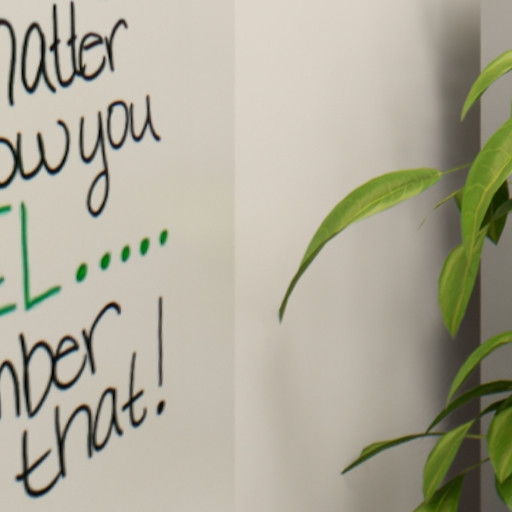 natter
ow you
EL.....
nber
that!